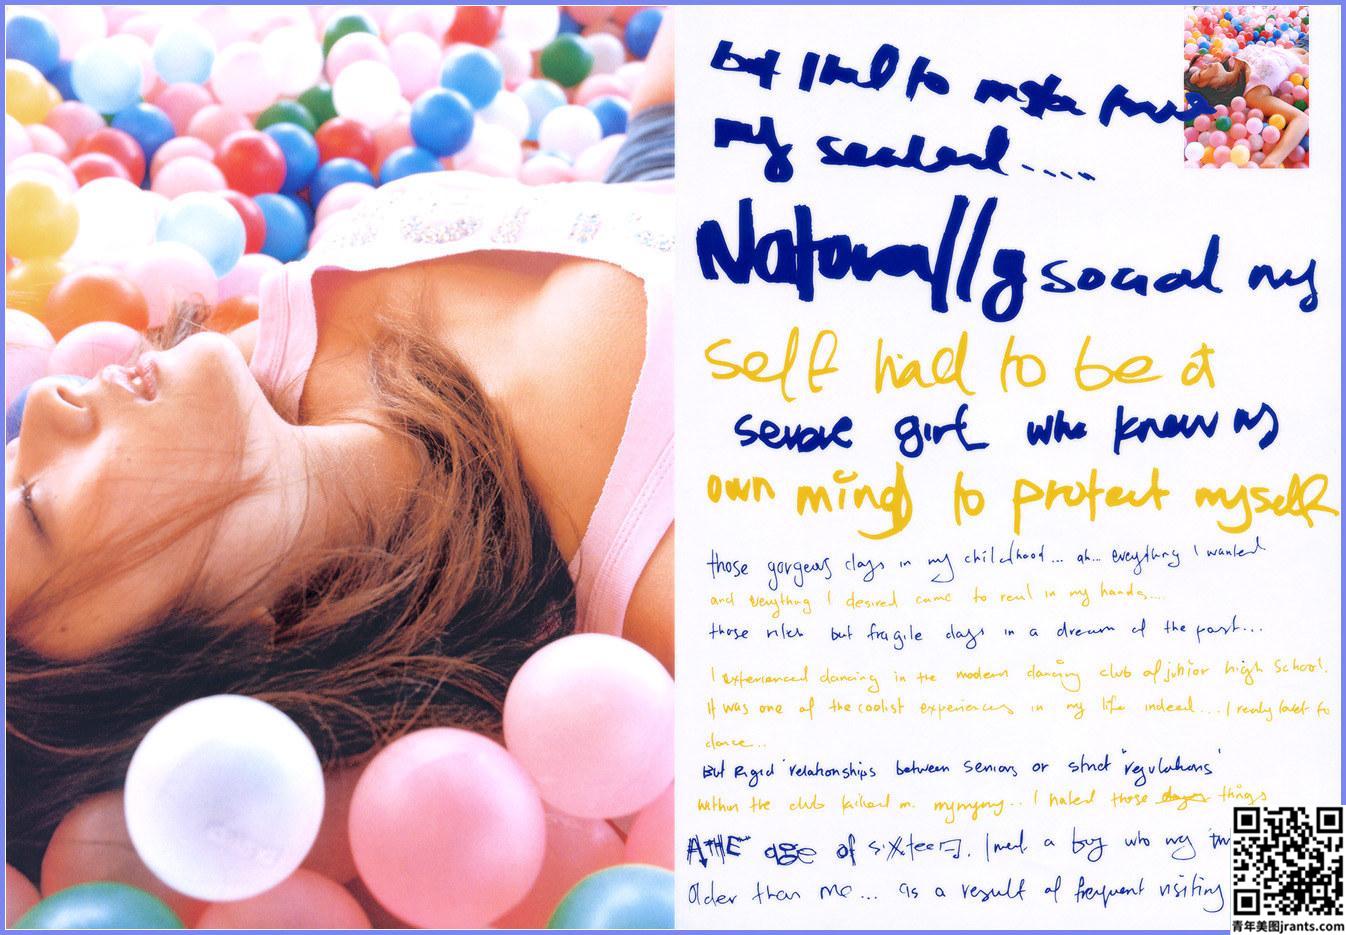 but I had to
my sealed....
Naturally social my
self had to be a
severe girl who knew my
own mind to protect myself
those gorgeous days in my childhood... ah... everything I wanted
and everything I desired came to real in my hands....
those rich but fragile days in a dream of the past...
I experienced dancing in the modern dancing club of junior high school.
It was one of the coolist experiences in my life indeed.... I really lovet to
dance..
But Rigid relationships between seniors or strict "regulations"
within the club me mymymy... I hated those days things
AtHE age of sixteen, I met a boy who my
older than me... as a result of frequent visiting
青年美图jrants.com